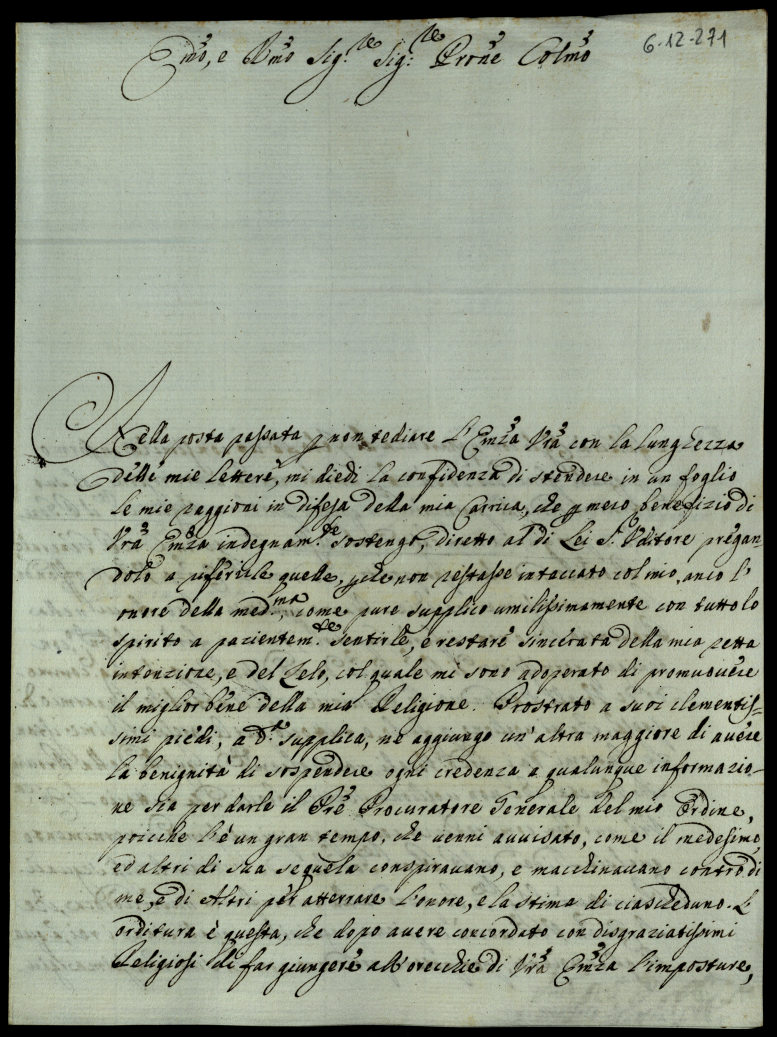 6-12-271
Emo, e Rmo Sig.re Sig.re Prone Colmo
Nella posta passata p non tediare l'Emza Vra con la lunghezza
delle mie lettere, mi diedi la confidenza di stendere in un foglio
le mie raggioni in difesa della mia Carrica, che p mero beneficio di
Vra Emza indegnam.te sostengo, diretto al di Lei S.r Uditore pregan
dolo a riferirle quelle, pche non restasse intaccato col mio, anco l'
onore della med.ma, come pure supplico umilissimamente con tutto lo
spirito a pazientem.te sentirle, e restare sincerata della mia retta
intenzione, e del Zelo, col quale mi sono adoperato di promuovere
il miglior bene della mia Religione. Prostrato a suoi clementis-
simi piedi, a d.a supplica, ne aggiungo un'altra maggiore di avere
la benignità di sospendere ogni credenza a qualunque informazio-
ne sia per darle il Pre Procuratore Generale del mio Ordine,
poicche l'è un gran tempo, che venni avvisato, come il medesimo
ed altri di sua sequela conspiravano, e macchinavano contro di
me, e di Altri per atterrare l'onore, e la stima di ciascheduno. L'
orditura è questa, che dopo avere concordato con disgraziatissimi
Religiosi di far giungere all'orecchie di Vra Emza l'imposture,